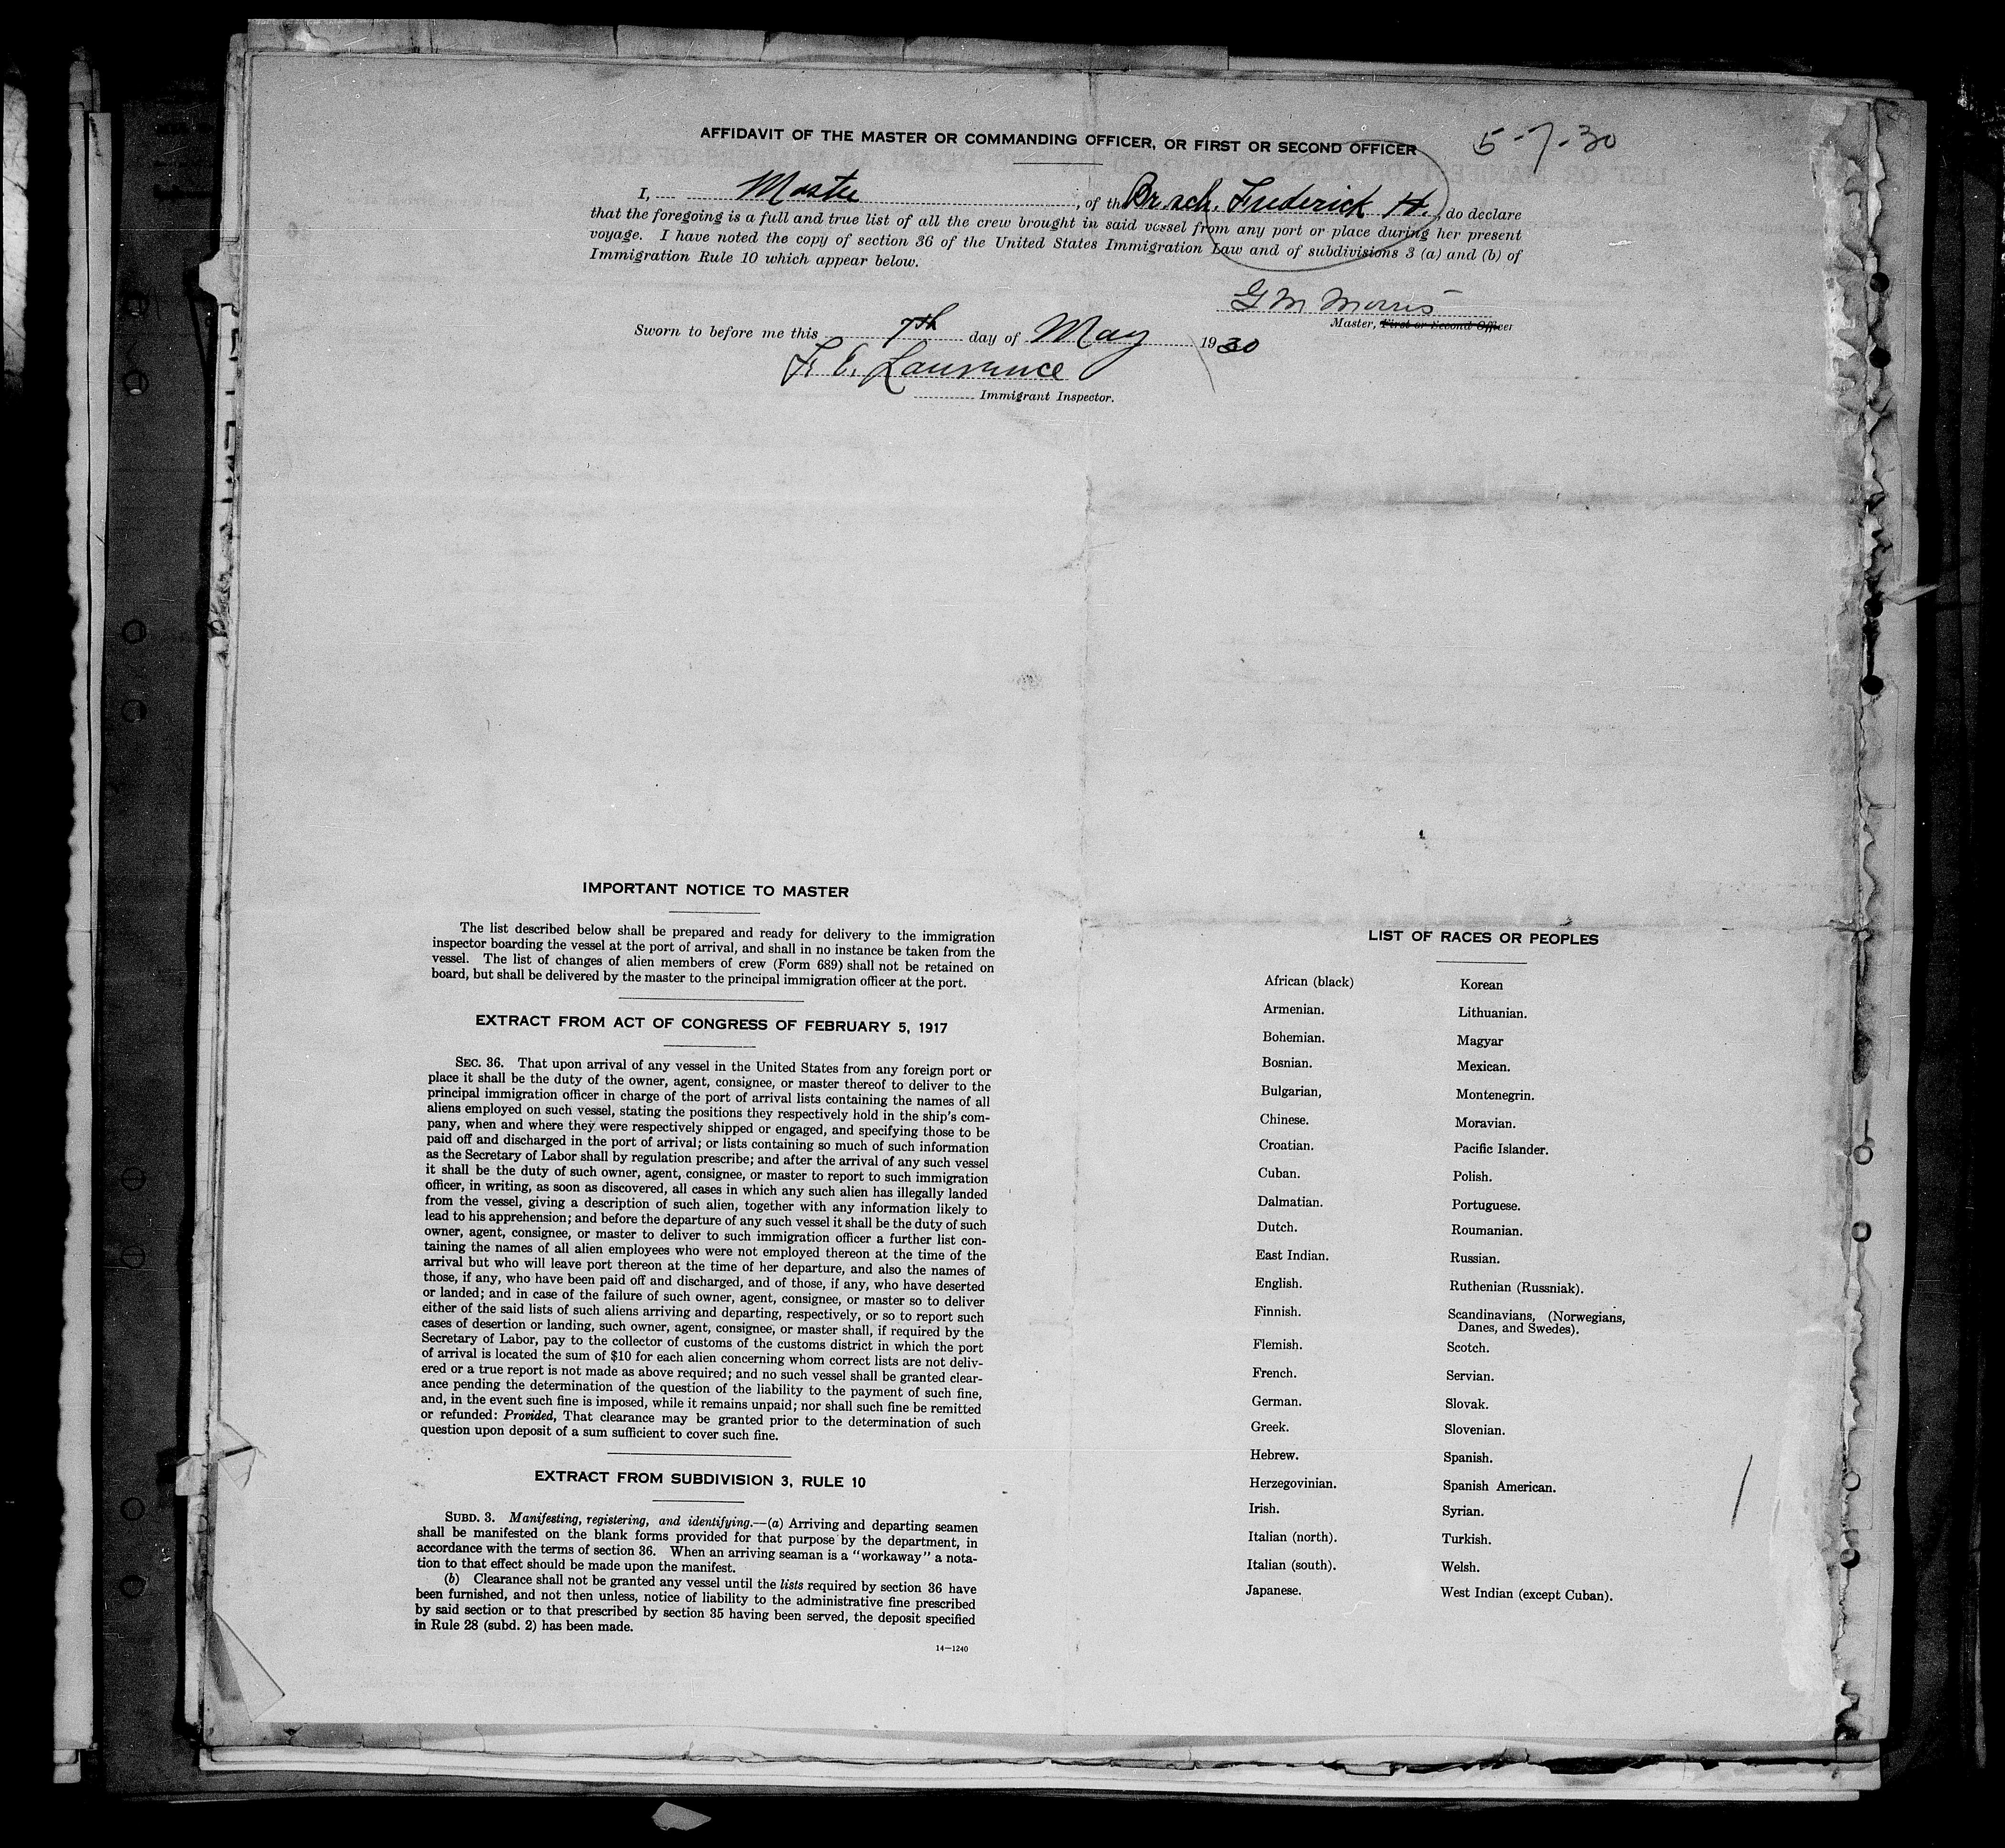 AFFIDAVIT OF THE MASTER OR COMMANDING OFFICER, OR FIRST OR SECOND OFFICER
5-7-30
I, Master, of the Br. sch. Frederick H., do declare
that the foregoing is a full and true list of all the crew brought in said vessel from any port or place during her present
voyage. I have noted the copy of section 36 of the United States Immigration Law and of subdivisions 3 (a) and (b) of
Immigration Rule 10 which appear below.
G M Morris
Master, First or Second Officer
Sworn to before me this 7th day of May 1930
F. E. Lawrence
Immigrant Inspector.
IMPORTANT NOTICE TO MASTER
The list described below shall be prepared and ready for delivery to the immigration
inspector boarding the vessel at the port of arrival, and shall in no instance be taken from the
vessel. The list of changes of alien members of crew (Form 689) shall not be retained on
board, but shall be delivered by the master to the principal immigration officer at the port.
EXTRACT FROM ACT OF CONGRESS OF FEBRUARY 5, 1917
SEC. 36. That upon arrival of any vessel in the United States from any foreign port or
place it shall be the duty of the owner, agent, consignee, or master thereof to deliver to the
principal immigration officer in charge of the port of arrival lists containing the names of all
aliens employed on such vessel, stating the positions they respectively hold in the ship's com-
pany, when and where they were respectively shipped or engaged, and specifying those to be
paid off and discharged in the port of arrival; or lists containing so much of such information
as the Secretary of Labor shall by regulation prescribe; and after the arrival of any such vessel
it shall be the duty of such owner, agent, consignee, or master to report to such immigration
officer, in writing, as soon as discovered, all cases in which any such alien has illegally landed
from the vessel, giving a description of such alien, together with any information likely to
lead to his apprehension; and before the departure of any such vessel it shall be the duty of such
owner, agent, consignee, or master to deliver to such immigration officer a further list con-
taining the names of all alien employees who were not employed thereon at the time of the
arrival but who will leave port thereon at the time of her departure, and also the names of
those, if any, who have been paid off and discharged, and of those, if any, who have deserted
or landed; and in case of the failure of such owner, agent, consignee, or master so to deliver
either of the said lists of such aliens arriving and departing, respectively, or so to report such
cases of desertion or landing, such owner, agent, consignee, or master shall, if required by the
Secretary of Labor, pay to the collector of customs of the customs district in which the port
of arrival is located the sum of $10 for each alien concerning whom correct lists are not deliv-
ered or a true report is not made as above required; and no such vessel shall be granted clear-
ance pending the determination of the question of the liability to the payment of such fine,
and, in the event such fine is imposed, while it remains unpaid; nor shall such fine be remitted
or refunded: Provided, That clearance may be granted prior to the determination of such
question upon deposit of a sum sufficient to cover such fine.
EXTRACT FROM SUBDIVISION 3, RULE 10
SUBD. 3. Manifesting, registering, and identifying.—(a) Arriving and departing seamen
shall be manifested on the blank forms provided for that purpose by the department, in
accordance with the terms of section 36. When an arriving seaman is a "workaway" a nota-
tion to that effect should be made upon the manifest.
(b) Clearance shall not be granted any vessel until the lists required by section 36 have
been furnished, and not then unless, notice of liability to the administrative fine prescribed
by said section or to that prescribed by section 35 having been served, the deposit specified
in Rule 28 (subd. 2) has been made.
14—1240
LIST OF RACES OR PEOPLES
African (black)
Armenian.
Bohemian.
Bosnian.
Bulgarian,
Chinese.
Croatian.
Cuban.
Dalmatian.
Dutch.
East Indian.
English.
Finnish.
Flemish.
French.
German.
Greek.
Hebrew.
Herzegovinian.
Irish.
Italian (north).
Italian (south).
Japanese.
Korean
Lithuanian.
Magyar
Mexican.
Montenegrin.
Moravian.
Pacific Islander.
Polish.
Portuguese.
Roumanian.
Russian.
Ruthenian (Russniak).
Scandinavians, (Norwegians,
Danes, and Swedes).
Scotch.
Servian.
Slovak.
Slovenian.
Spanish.
Spanish American.
Syrian.
Turkish.
Welsh.
West Indian (except Cuban).